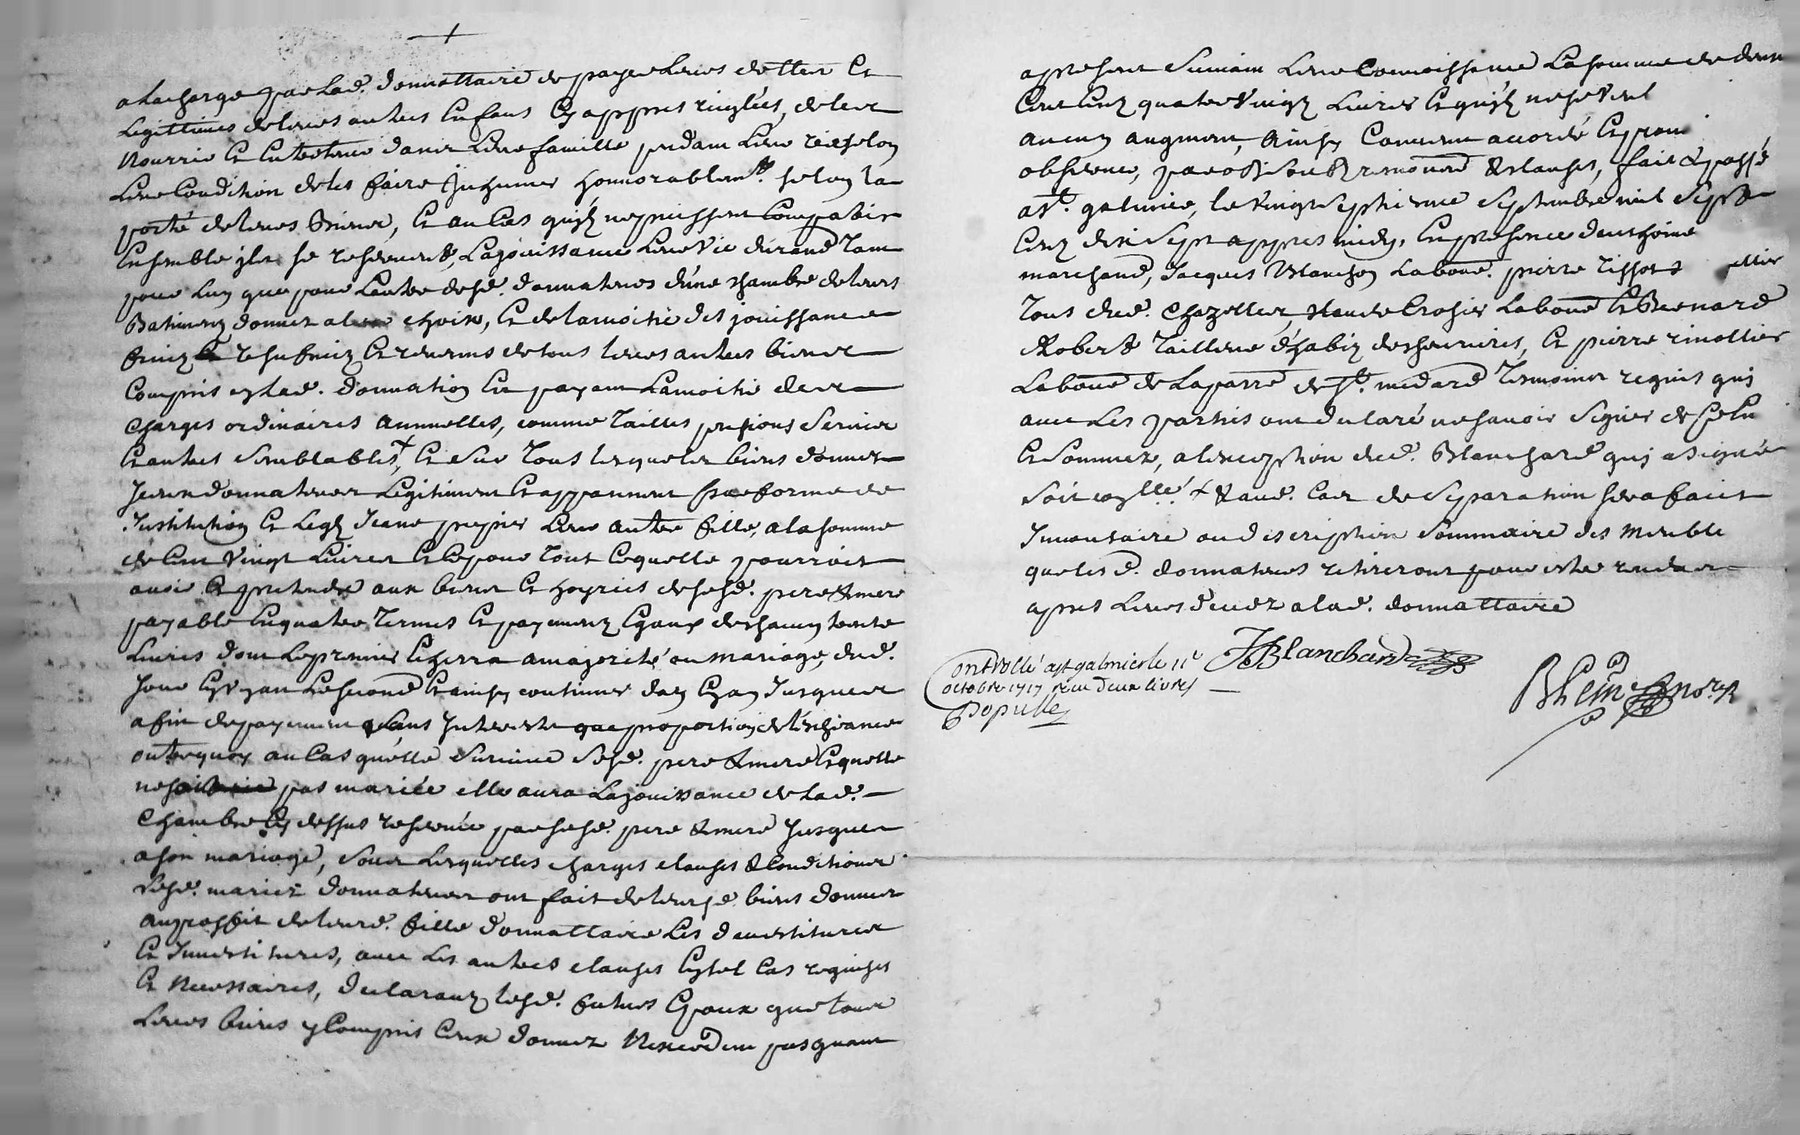 a la charge par lad. donnattaire de payer leurs dettes et
legittimes de leurs autres enfans cy appres reiglées, de les
nourrir et entretenir dans leur famille pendant leur vie selon
leur condition de les faire inhumer honnorablemt. selon la
porté de leurs biens, et au cas quilz ne puissent compatir
ensemble ilz se reservent la jouissance leur vie durand tant
pour luy que pour lautre desd. donnateurs d'une chambre de leurs
batimens donnes a leur choix, et de la moitié des jouissances
fruiz et revenus de tous leurs autres biens
compris en lad. donnation en payant la moitié des
charges ordinaires annuelles, comme tailles pensions servis
et autres semblables + et sur tous lesquels biens donnes
iceux donnateurs legitiment et appanent par forme de
institution et legz Jeane leur autre fille, a la somme
de cent vingt livres et ce pour tout ce quelle pourroit
avoir et pretendre aux biens et hoyries de sesd. pere & mere
payable en quatre termes et payemens egaux de chacun trente
livres dont le premier escherra a majorité ou mariage, dud.
jour en ung an le second et ainsy continuer dan en an jusques
a fin de payement sans interests que proportion de leschance
outre quoy au cas quelle survive sesd. pere & mere et quelle
ne soit pas mariée elle aura la jouissance de lad.
chambre cy dessus reservée par sesd. pere & mere jusques
a son mariage, sous lesquelles charges clauses & conditions
lesd. mariez donnateurs ont fait de leursd. biens donnes
au proffit de leurd. fille donnattaire les devestitures
et investitures, avec les autres clauses en tel cas requises
et necessaires, declarant lesd. futurs epoux que tous
leurs biens y compris ceux donnez nexcedent pas quant
a present suivant leur connoissance la somme de deux
cent cinq quatre vingz livres et quilz ne se font
aucun augment, ainsy convenu accordé et promi
observer, par obligé & clauses, fait & passé
a St. galmier, le vingt septieme septembre mil sept
cens dix sept appres midy, en presence
marchand, Jacques Blanchon labour. pierre tissot
tous dud. chazelles labour et Bernard
Robert tailleur d'habiz de chevrieres, et pierre rivollier
labour de la parre de St. medard tesmoins requis quj
avec les parties ont declaré ne scavoir signer de ce en
et sommez, a lexception dud. Blanchard quj a signé
soit coll. + & aud. cas de separation sera faict
inventaire ou description sommaire des meuble
que lesd. donnateurs retireront pour estre rendues
apres leurs decez a lad. donnattaire
Controllé a st galmier le 11e
octobre 1717 receu deux livres
JBlanchard
nore. R